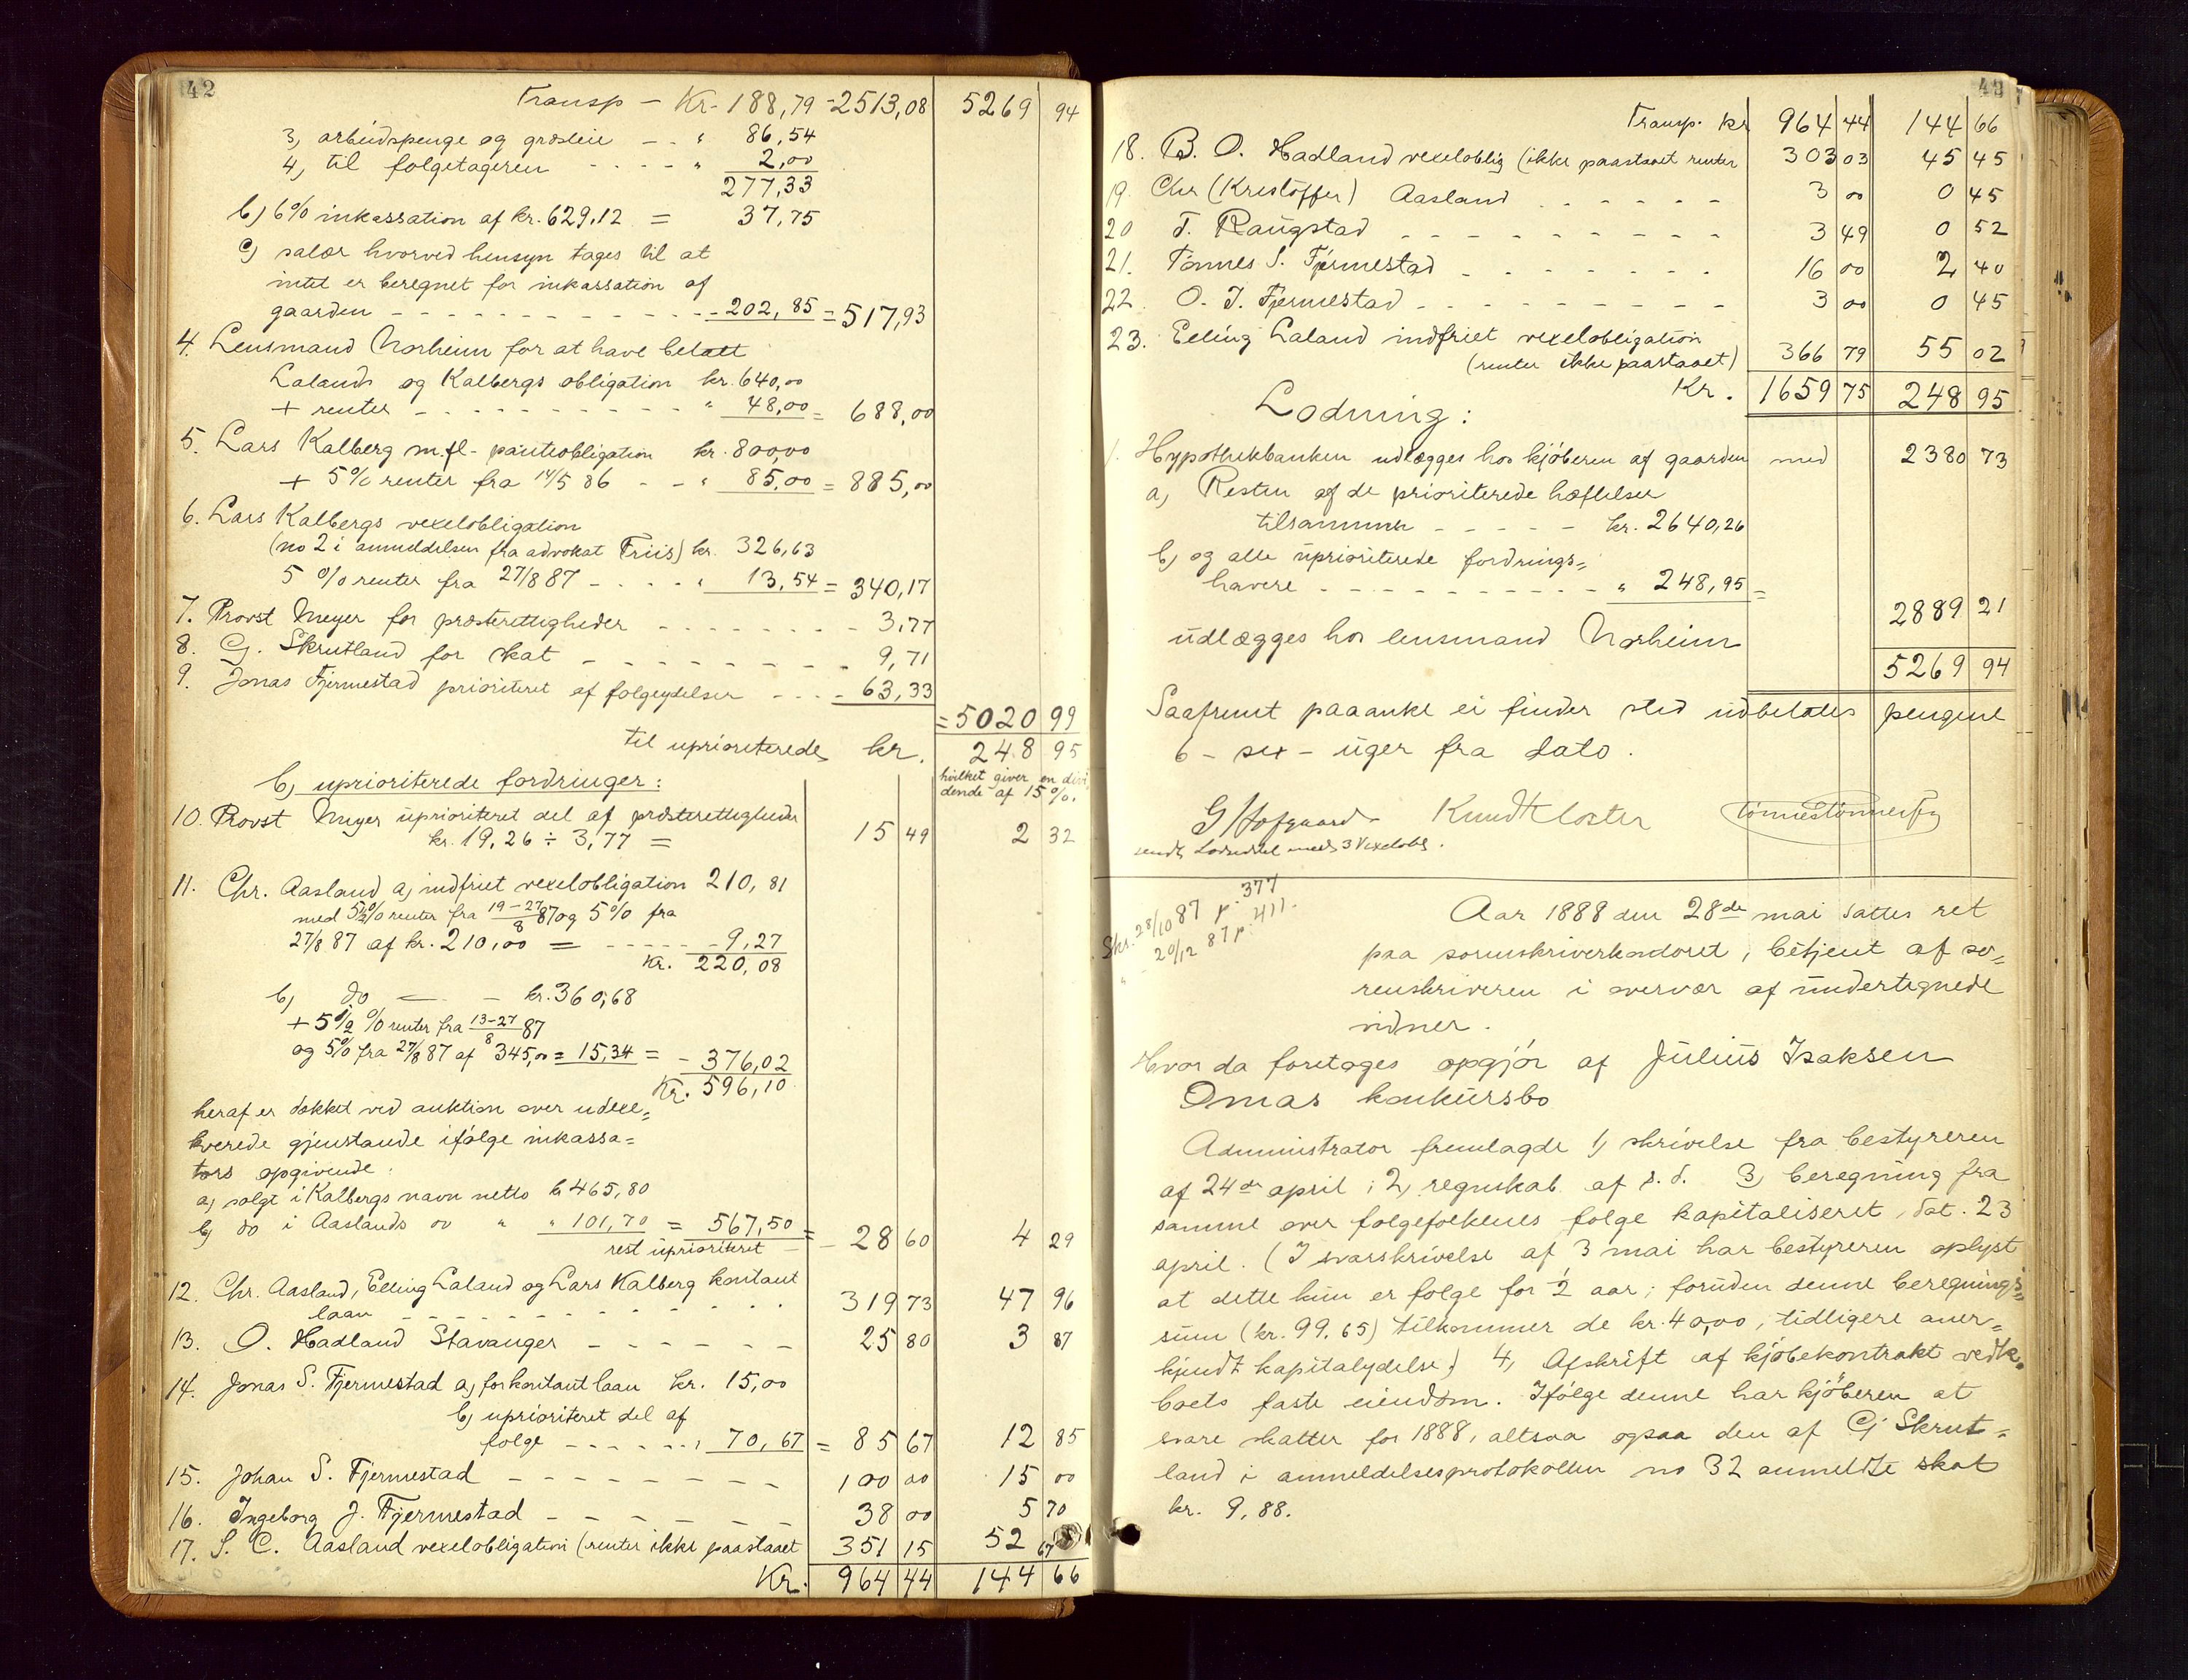 42
Transp – Kr. 188,79 = 2513,08 5269 94
3, arbeidspenge og græsleie – – " 86,54
4, til folgetageren - - - - " 2,00
277,33
b) 6% inkassation af kr. 629,12 = 37,75
c) salær hvorved hensyn tages til at
intet er beregnet for inkassation af
gaarden - - - - - - - - - - 202,85 = 517,93
4. Lensmand Norheim for at have betalt
Lalands og Kalbergs obligation kr. 640,00
+ renter - - - - - - - - - " 48,00 = 688,00
5. Lars Kalberg m.fl. panteobligation kr. 800,00
+ 5% renter fra 14/5 86 - - " 85,00 = 885,00
6. Lars Kalbergs vexelobligation
(no 2 i anmeldelsen fra advokat Friis) kr. 326,63
5 % renter fra 27/8 87 - - - - " 13,54 = 340,17
7. Provst Meyer for presterettigheder - - - - - - - 3,77
8. Cj. Skrutland for skat - - - - - - - - - 9,71
9. Jonas Fjermestad prioriteret af folgeydelser - - - - 63,33
= 5020 99
til uprioriterede kr. 248 95
b, uprioriterede fordringer:
hvilket giver en divi
dende af 15 %.
10. Provst Meyer uprioriteret del af presterettigheder
kr. 19,26 ÷ 3,77 = 15 49 2 32
11. Chr. Aasland a, indfriet vexelobligation 210, 81
med 5½% renter fra 19–27/8 87 og 5% fra
27/8 87 af kr. 210,00 = - - - - - 9,27
Kr. 220,08
b, do — – kr. 360,68
+ 5 1/2 % renter fra 13–27/8 87
og 5% fra 27/8 87 af 345,00 = 15,34 = - 376,02
Kr. 596,10
heraf er dækket ved auktion over udexe=
kverede gjenstande ifølge inkassa=
tors opgivende:
a, solgt i Kalbergs navn netto kr 465,80
b, do i Aaslands do " " 101,70 = 567,50 =
rest uprioriteret – 28 60 4 29
12. Chr. Aasland, Elling Laland og Lars Kalberg kontant
laan - - - - - - - - - - 319 73 47 96
13. O. Hadland Stavanger - - - - - - 25 80 3 87
14. Jonas S. Fjermestad a, for kontant laan kr. 15,00
b, uprioriteret del af
folge - - - - - - , 70,67 = 85 67 12 85
15. Johan S. Fjermestad - - - - - - - - 100 00 15 00
16. Ingeborg J. Fjermestad - - - - - - 38 00 5 70
17. S. C. Aasland vexelobligation (renter ikke paastaaet 351 15 52 67
Kr. 964 44 144 66
43
Transp. kr 964 44 144 66
18. B. O. Hadland vexeloblig (ikke paastaaet renter 303 03 45 45
19. Chr (Kristoffer) Aasland - - - - - - 3 00 0 45
20 T. Raugstad - - - - - - - - - 3 49 0 52
21. Tønnes S. Fjermestad - - - - - - - 16 00 2 40
22. O. T. Fjermestad - - - - - - - - - 3 00 0 45
23. Elling Laland indfriet vexelobligation
(renter ikke paastaaet) 366 79 55 02
Kr. 1659 75 248 95
Lodning:
1. Hypothekbanken udlægges hos kjøberen af gaarden med 2380 73
a, Resten af de prioriterede hæftelser
tilsammen - - - - - kr. 2640,26
b, og alle uprioriterede fordrings=
havere - - - - - - - - - - - " 248,95 =
2889 21
udlægges hos lensmand Norheim
5269 94
Saafremt paaanke ei finder sted udbetales pengene
6 – sex – uger fra dato.
G Hofgaard Knudt Kloster Tønnes Tønnesen
sendt Lodseddel med 3 Vexelobl.
Skr. 28/10 87 p. 377
" – 20/12 87 p. 411.
Aar 1888 den 28de mai sattes ret
paa sorenskriverkontoret, betjent af so=
renskriveren i overvær af undertegnede
vidner.
Hvor da foretages opgjør af Julius Isaksen
Omas konkursbo
Administrator fremlagde 1, skrivelse fra bestyreren
af 24de april; 2, regnskab af s. d. 3, beregning fra
samme over folgefolkenes folge kapitaliseret, dat. 23
april. (I svarskrivelse af 3 mai har bestyreren oplyst
at dette kun er folge for 1/2 aar; foruden denne beregnings=
sum (kr. 99.65) tilkommer de kr. 40,00, tidligere aner=
kjendt kapitalydelse.) 4, Afskrift af kjøbekontrakt vedk.
boets faste eiendom. Ifølge denne har kjøberen at
svare skatter for 1888, altsaa ogsaa den af Cj Skrut=
land i anmeldelsesprotokollen no 32 anmeldte skat
kr. 9,88.